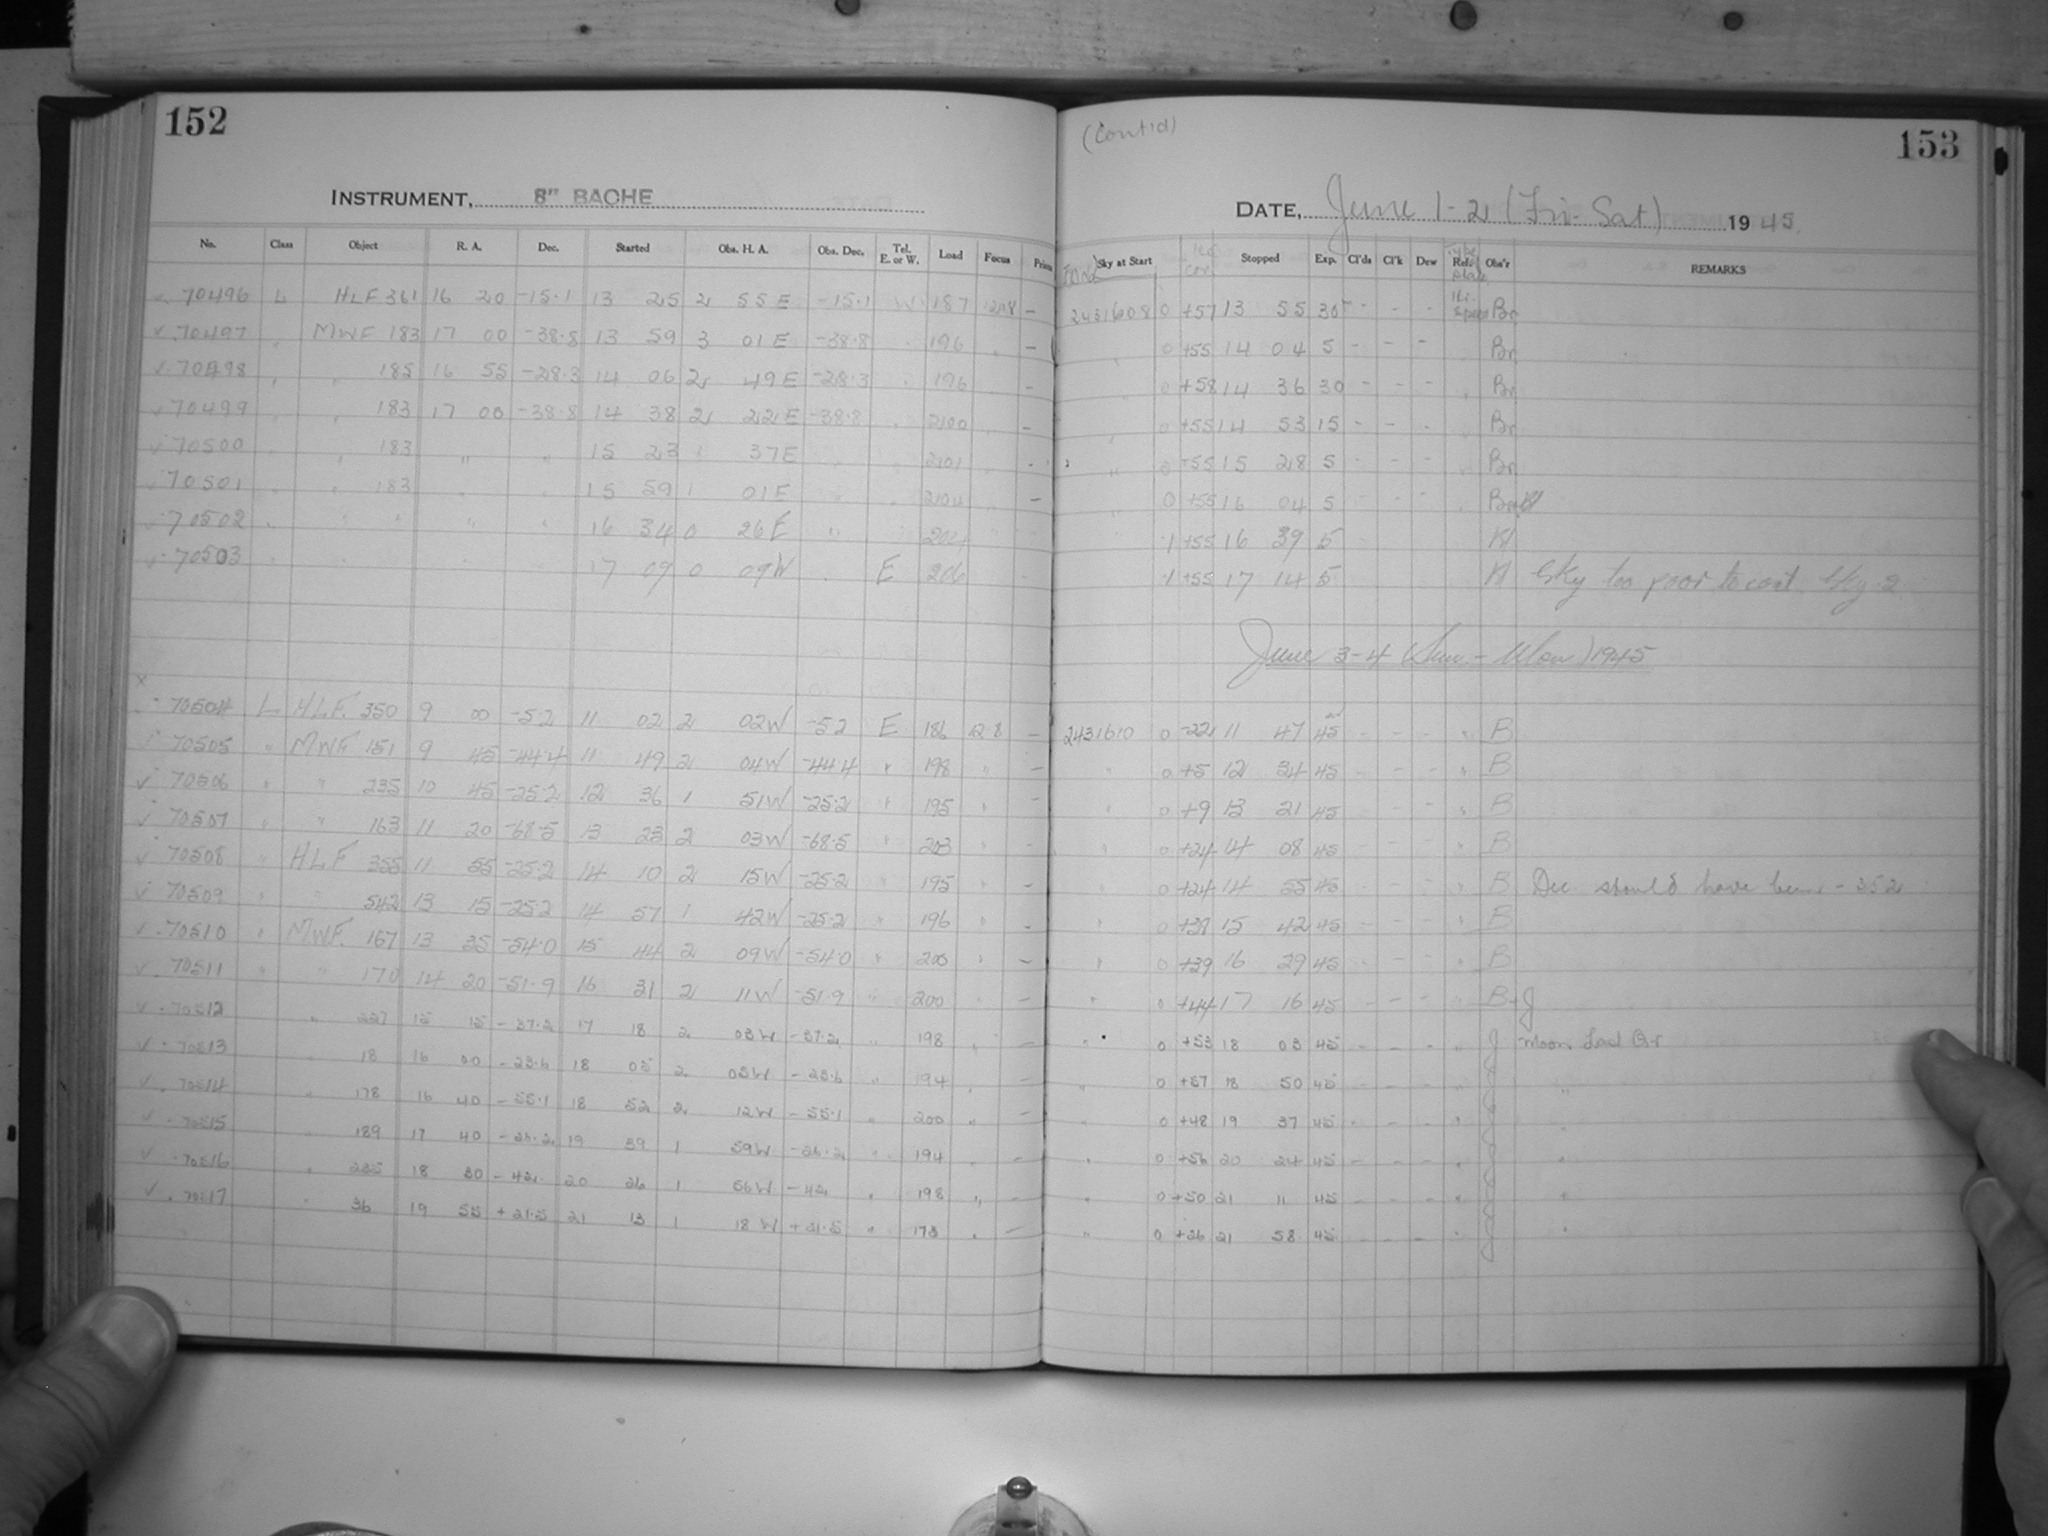 152
INSTRUMENT, 8" BACHE
No. Class Object R. A. Dec. Started Obs. H. A. Obs. Dec. Tel. E. or W. Load Focus Prism
70496 L HLF 361 16 20 -15.1 13 25 2 55 E -15.1 W 187 12.8 -
70497 " MWF 183 17 00 -38.8 13 59 3 01 E -38.8 " 196 " -
70498 " " 185 16 55 -28.3 14 06 2 49 E -28.3 " 196 " -
70499 " " 183 17 00 -38.8 14 38 2 22 E -38.8 " 200 " -
70500 " " 183 " " 15 23 1 37 E " " 201 " -
70501 " " 183 " " 15 59 1 01 E " " 204 " -
70502 " " " " " 16 34 0 26 E " " 204
70503 " " " " " 17 09 0 09 W " E 206
70504 L HLF. 350 9 00 -5.2 11 02 2 02 W -5.2 E 186 12.8 -
70505 " MWF 151 9 45 -44.4 11 49 2 04 W -44.4 " 198 " -
70506 " " 235 10 45 -25.2 12 36 1 51 W -25.2 " 195 " -
70507 " " 163 11 20 -68.5 13 23 2 03 W -68.5 " 203 " -
70508 " HLF 355 11 55 -25.2 14 10 2 15 W -25.2 " 195 " -
70509 " " 542 13 15 -25.2 14 57 1 42 W -25.2 " 196 " -
70510 " MWF. 167 13 35 -54.0 15 44 2 09 W -54.0 " 200 " -
70511 " " 170 14 20 -51.9 16 31 2 11 W -51.9 " 200 " -
70512 " 227 15 15 -37.2 17 18 2 03 W -37.2 " 198 " -
70513 " 18 16 00 -23.6 18 05 2 05 W -23.6 " 194 " -
70514 " 178 16 40 -55.1 18 52 2 12 W -55.1 " 200 " -
70515 " 189 17 40 19 39 1 59 W " 194 " -
70516 " 18 30 -42. 20 26 1 56 W -42. " 198 " -
70517 " 36 19 55 +21.5 21 13 1 18 W +21.5 " 173 " -
(Cont'd) 153
DATE, June 1-2 (Fri-Sat) 1945.
Sky at Start Stopped Exp. Cl'ds Cl'k Dew Rel. Type Obs'r REMARKS
2431608 0 +57 13 55 30 - - - Hi-Speed Br
" 0 +55 14 04 5 - - - Br
" 0 +58 14 36 30 - - - " Br
" 0 +55 14 53 15 - - - " Br
" 0 +55 15 28 5 - - - " Br
" 0 +55 16 04 5 - - - " Br
" 1 +55 16 39 5 -
" 1 +55 17 14 5 Sky too poor to cont. Sky 2
June 3-4 (Sun-Mon) 1945
2431610 0 -22 11 47 45 - - - " B
" 0 +5 12 34 45 - - - " B
" 0 +9 13 21 45 - - - " B
" 0 +24 14 08 45 - - - " B
" 0 +24 14 55 45 - - - " B Dec. should have been -35.2
" 0 +39 15 42 45 - - - " B
" 0 +39 16 29 45 - - - " B
" 0 +44 17 16 45 - - - " B+J
" 0 +53 18 03 45 - - - " J Moon Last Qr
" 0 +57 18 50 45 - - - " J "
" 0 +48 19 37 45 - - - " J "
" 0 +56 20 24 45 - - - " J "
" 0 +50 21 11 45 - - - " J "
" 0 +26 21 58 45 - - - " J "